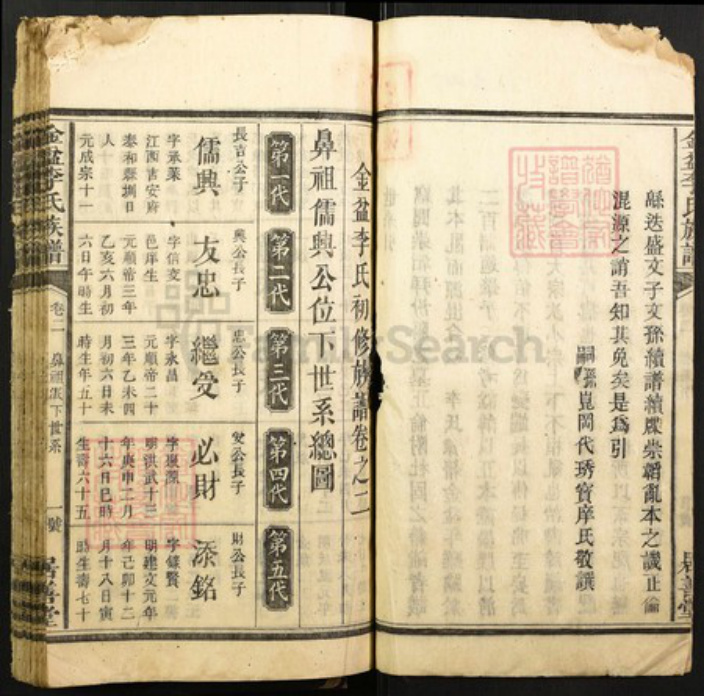 緜迭盛文子文孫續譜續牒崇韜亂本之譏止偷
混源之誚吾知其免矣是爲引
嗣孫崑岡代琇寳庠氏敬譔
居善堂
金盆李氏族譜
金盆李氏初修族譜卷之二
鼻祖儒興公位下世系總圖
第一代
第二代
第三代
第四代
第五代
長吉公子
儒興
字承業
江西吉安府
泰和縣圳日
人
元成宗十一
興公長子
友忠
字信交
邑庠生
元順帝三年
乙亥六月初
六日午時生
忠公長子
繼受
字永昌
元順帝二十
三年乙未四
月初六日未
時生年五十
受公長子
必財
字振源
明洪武十三
年庚申二月
十六日巳時
生壽六十五
財公長子
添銘
字鍱賢
明建文元年
年己卯十二
月十八日寅
時生壽七十
金盆李氏族譜
卷二
鼻祖派下世系
一號
居善堂
FamilySearch